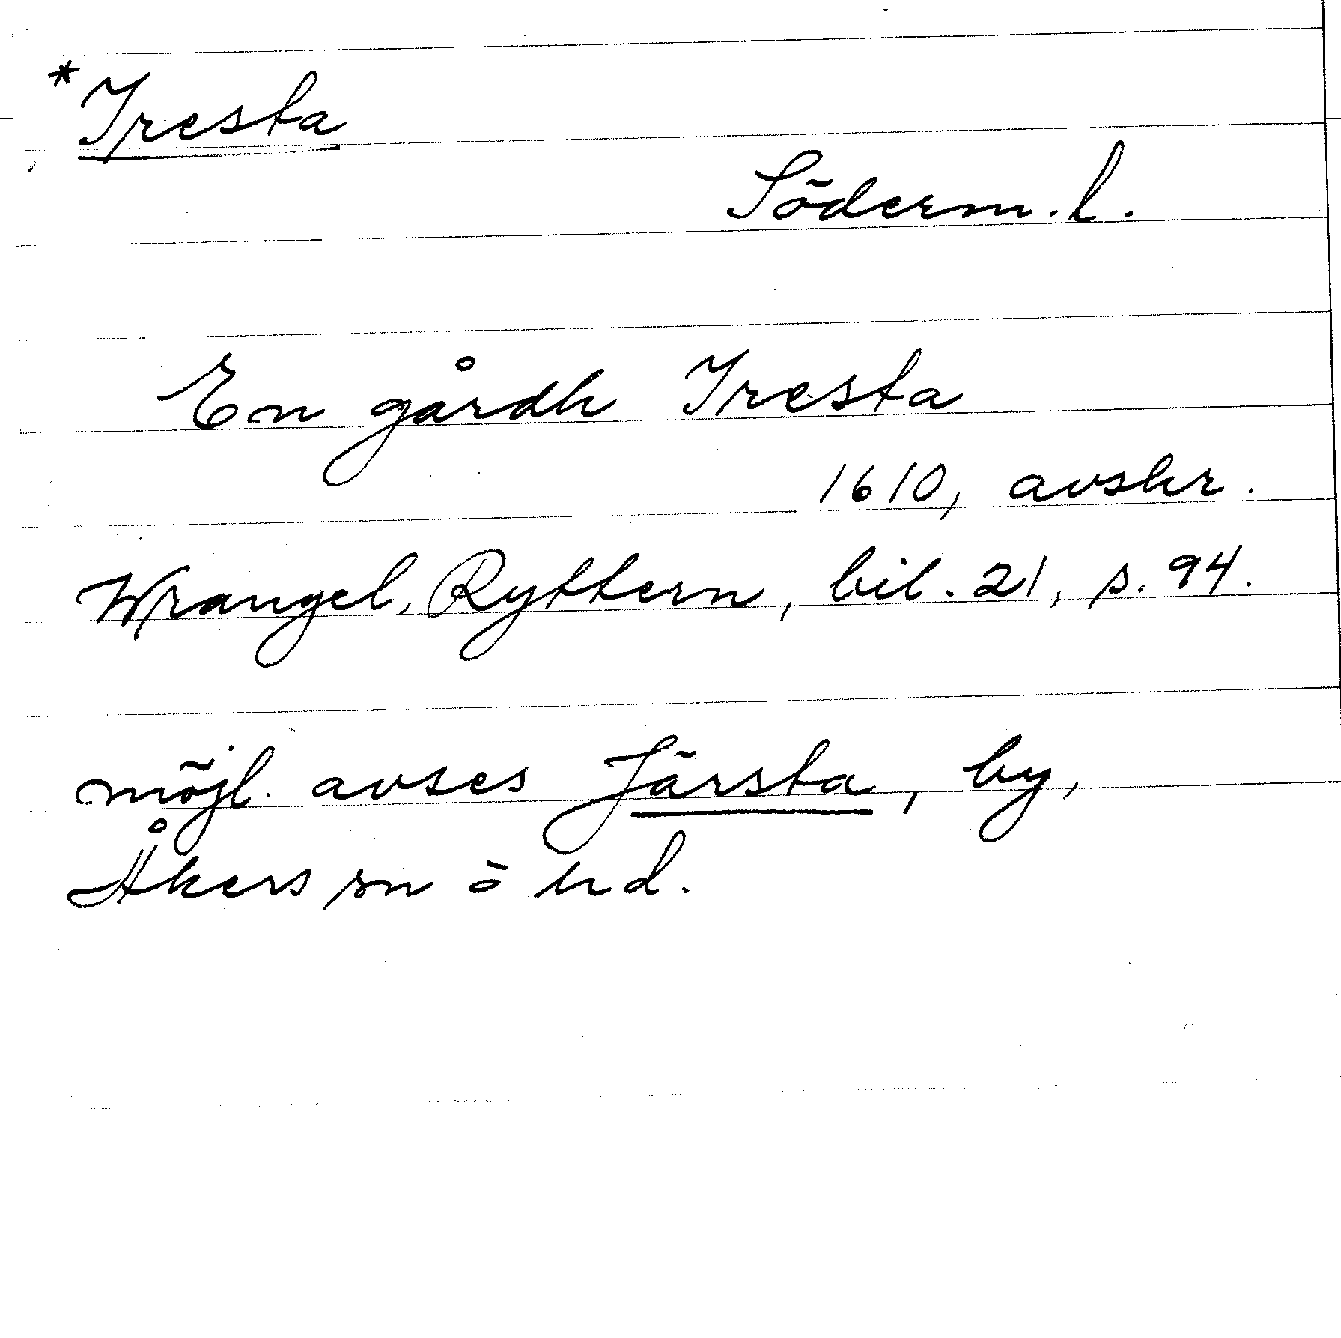 *Iresta
Söderm. l.
En gårdh Iresta
1610, avskr.
Wrangel, Ryttern, bil. 21, s. 94.
möjl. avses Järsta, by,
Åkers sn o hd.